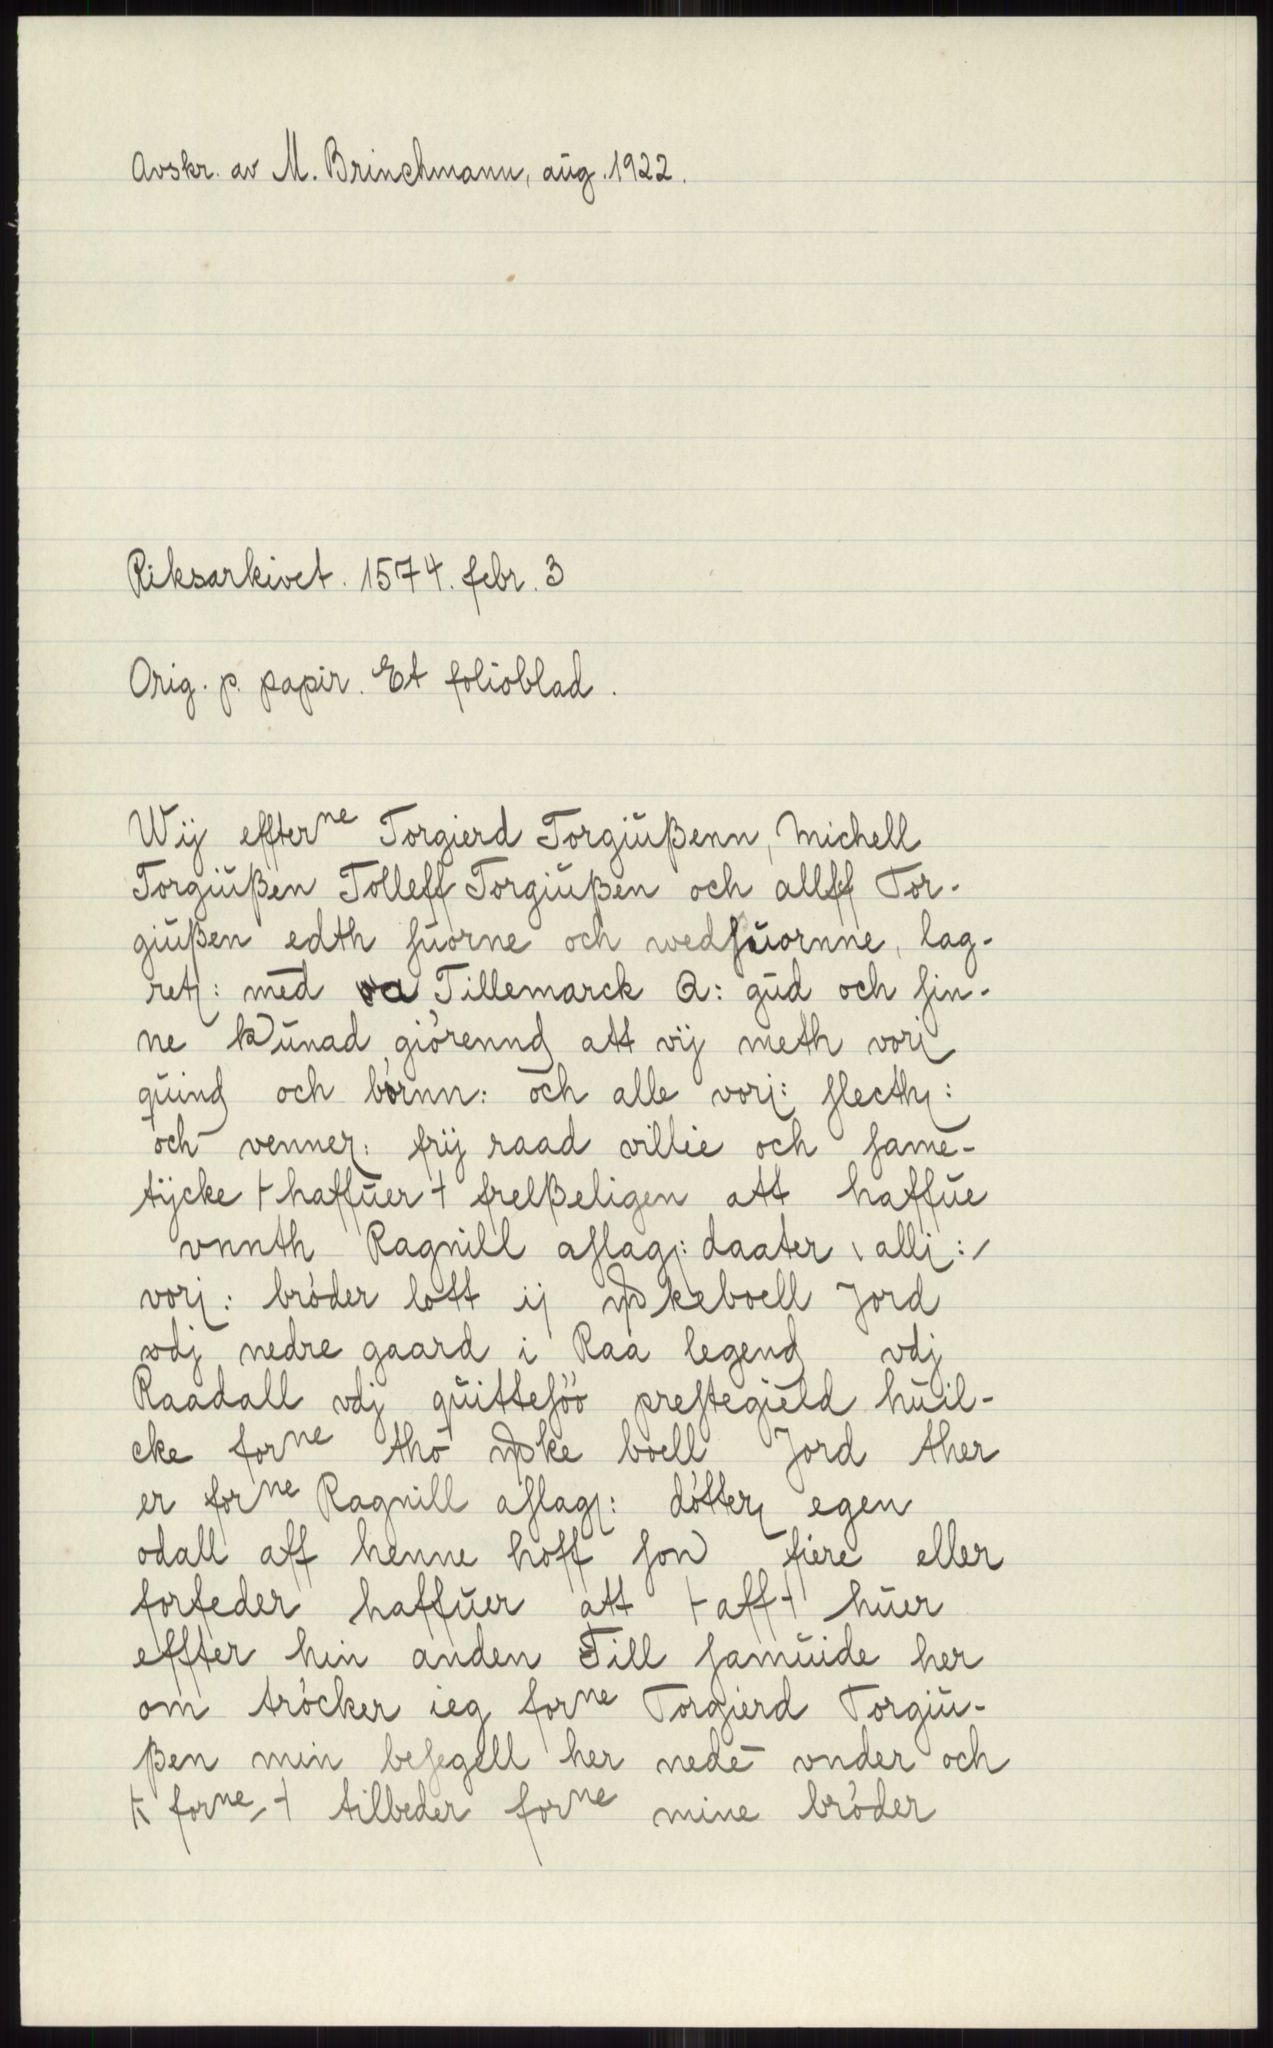 Avskr. av M. Brinchmann, aug. 1922.
Riksarkivet. 1574. febr. 3
Orig. p. papir. Et folioblad.
Wij effterne Torgierd Torgiußenn, Michell
Torgiußen Tolleff Torgiußen och allff Tor-
giußen edth suorne och wedsuornne, lag-
retz: med Tillemarck G: gud och sin-
ne Kunad giörennd att vij meth vorj
quind och börnn: och alle vorj: slecthz:
och vennerz: frij raad villie och same-
tycke + haffuer + frelßeligen att haffue
vnnth Ragnill aslagz: daater allj:
vorj: bröder lott ij keboell Jord
vdj nedre gaard i Raa legend vdj
Raadall vdj quittesöö prestegield huil-
cke forne tho ke boell Jord ther
er forne Ragnill aslagz: dötterz egen
odall aff henne hoff son fiere eller
forfeder haffuer att + aff + huer
effter hin anden Till samuide her
om tröcker ieg forne Torgierd Torgiu-
ßen min besegell her nede vnder och
+ forne + tilbeder forne mine bröder